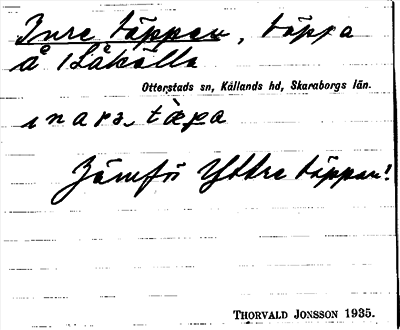 Inre täppan, täppa
å 1 Låkälla
Otterstads sn, Kållands hd, Skaraborgs län.
ınara, tæpa
Jämför Yttre täppan!
THORVALD JONSSON 1935.